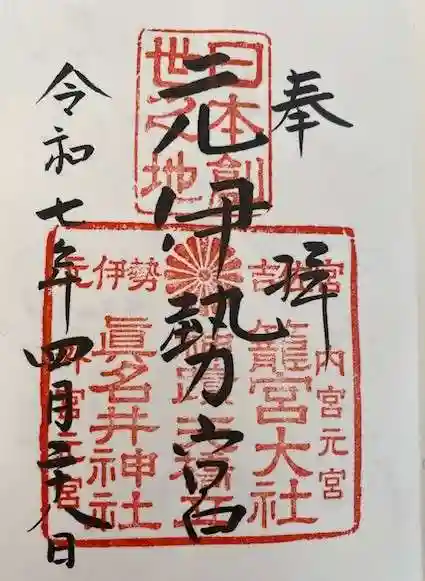 奉拝
元伊勢宮
令和七年四月二十八日
日本創
世之地
籠宮大社
眞名井神社
内宮元宮
伊勢